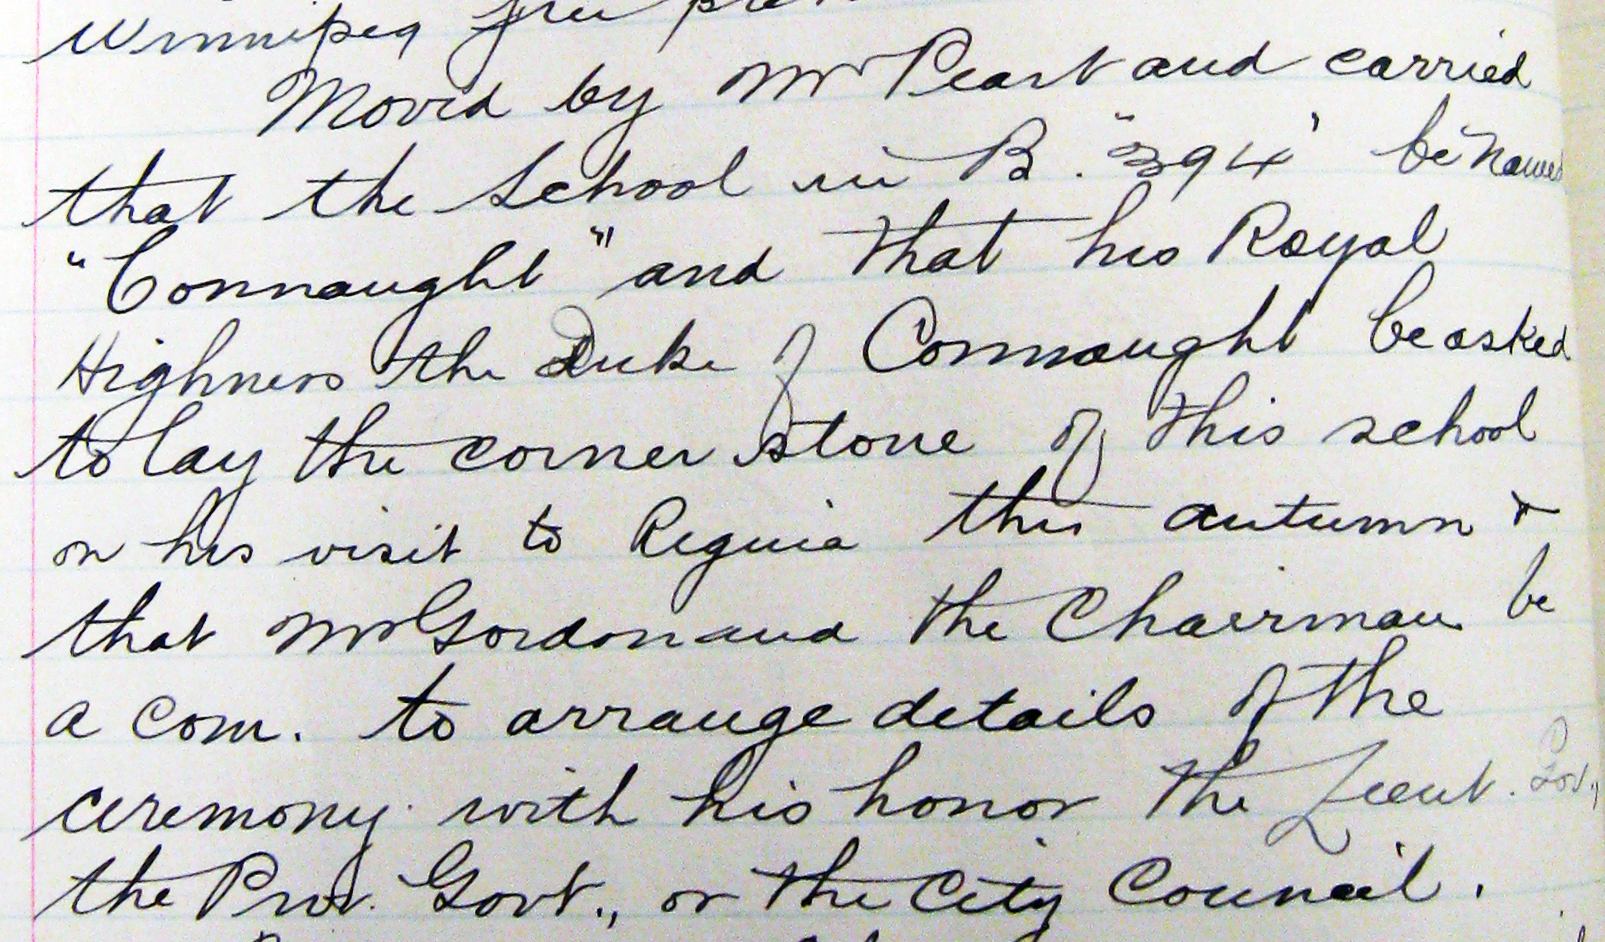 Winnipeg free
Moved by Mr Peart and carried
that the School in B. "394" be named
"Connaught" and that his Royal
Highness the Duke of Connaught be asked
to lay the corner stone of this school
on his visit to Regina this autumn &
that Mr Gordon and the Chairman be
a Com. to arrange details of the
ceremony with his honor the Lieut. Gov.,
the Prov. Govt., or the City Council.